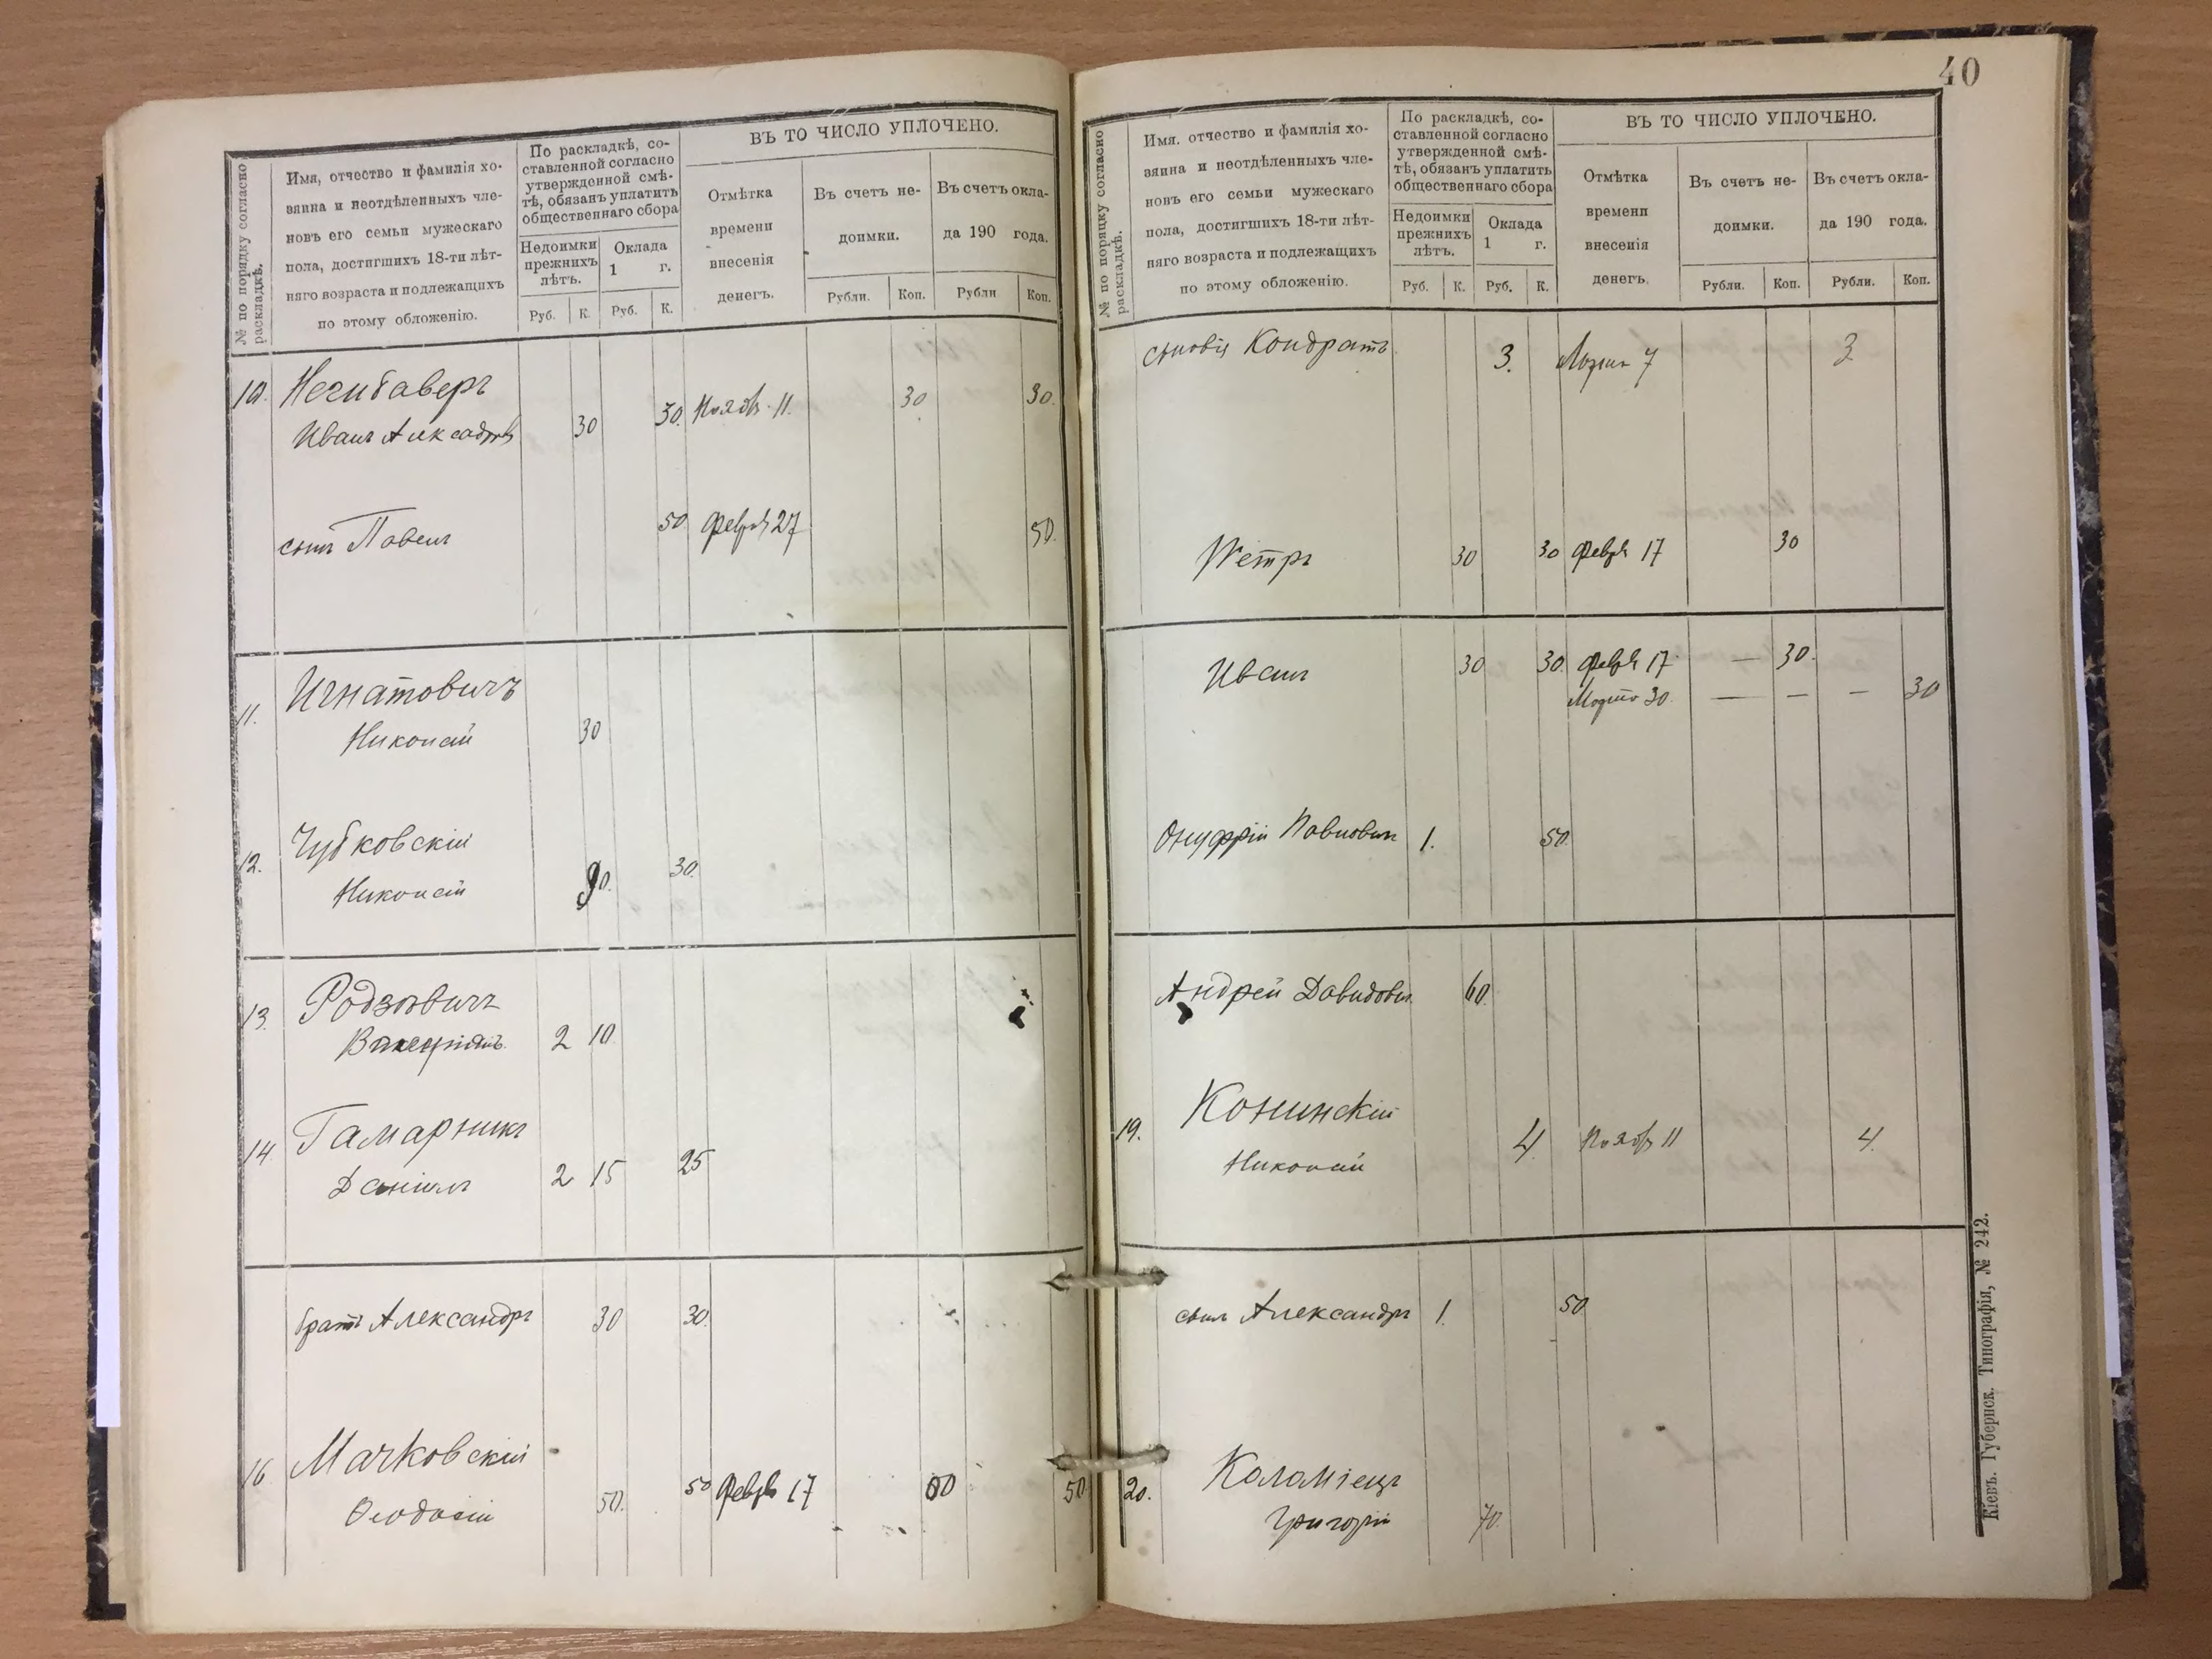 № по порядку согласно
раскладкѣ.
Имя, отчество и фамилія хо-
зяина и неотдѣленныхъ чле-
новъ его семьи мужескаго
пола, достигшихъ 18-ти лѣт-
няго возраста и подлежащихъ
по этому обложенію.
По раскладкѣ, со-
ставленной согласно
утвержденной смѣ-
тѣ, обязанъ уплатить
общественнаго сбора
Недоимки
прежнихъ
лѣтъ.
Оклада
1 г.
Руб. К. Руб. К.
ВЪ ТО ЧИСЛО УПЛОЧЕНО.
Отмѣтка
времени
внесенія
денегъ.
Въ счетъ не-
доимки.
Въ счетъ окла-
да 190 года.
Рубли. Коп. Рубли Коп.
10.
Иванъ 30 30. Нояб. 11. 30 30.
сынъ Павелъ 50 февр 27 50.
11. Игнатовичъ
Николай 30
12. Чубковскій
Николай 90. 30.
13. Родзевичъ
2 10
14. Гамарникъ
Даніилъ 2 15 25
братъ Александръ 30 30.
16 Мачковскій
Ѳеодосій 50. 50 февр 17 50 50
40
№ по порядку согласно
раскладкѣ.
Имя. отчество и фамилія хо-
зяина и неотдѣленныхъ чле-
новъ его семьи мужескаго
пола, достигшихъ 18-ти лѣт-
няго возраста и подлежащихъ
по этому обложенію.
По раскладкѣ, со-
ставленной согласно
утвержденной смѣ-
тѣ, обязанъ уплатить
общественнаго сбора
Недоимки
прежнихъ
лѣтъ.
Оклада
1 г.
Руб. К. Руб. К.
ВЪ ТО ЧИСЛО УПЛОЧЕНО.
Отмѣтка
времени
внесенія
денегъ.
Въ счетъ не-
доимки.
Въ счетъ окла-
да 190 года.
Рубли. Коп. Рубли. Коп.
Кондратъ 3. 7 3
Петръ 30 30 февр 17 30
Иванъ 30 30. февр 17 — 30.
Марта 30 — — — 30
Онуфрій Павлович 1. 50.
Андрей Давидович 60.
19. Конинскій
Николай 4. Нояб 11 4.
сынъ Александръ 1. 50
20. Коломіецъ
Григорій 70.
Кіевъ. Губернск. Типографія, № 242.